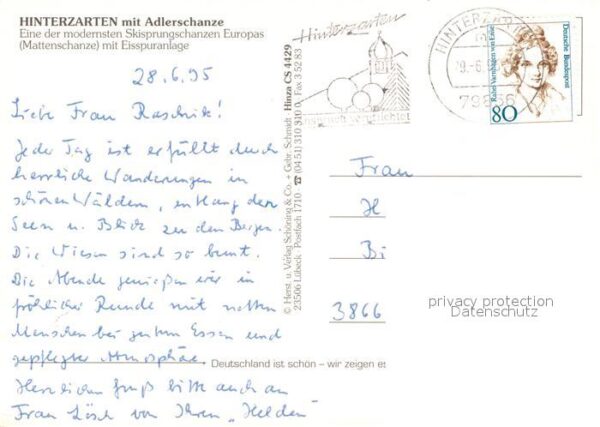 HINTERZARTEN mit Adlerschanze
Eine der modernsten Skisprungschanzen Europas
(Mattenschanze) mit Eisspuranlage
28.6.95
Liebe Frau
Jeder Tag ist erfüllt durch
herrliche Wanderungen in
schönen Wäldern, entlang der
Seen u. Blick zu den Bergen.
Die Wiesen sind so bunt.
Die Abende genießen wir in
fröhlicher Runde mit netten
Menschen bei gutem Essen und
gepflegter Atmosphäre.
Herzlichen Gruß bitte auch an
Frau Lösch von Ihren „Helden"
© Herst. u. Verlag Schöning & Co. + Gebr. Schmidt Hinza CS 4429
23506 Lübeck · Postfach 1710 ☎ (04 51) 310 310 Fax 3 52 83
Deutschland ist schön – wir zeigen es
Hinterzarten
verpflichtet
HINTERZARTEN
79856
Deutsche Bundespost
80
Frau
H
Bi
3866
privacy protection
Datenschutz